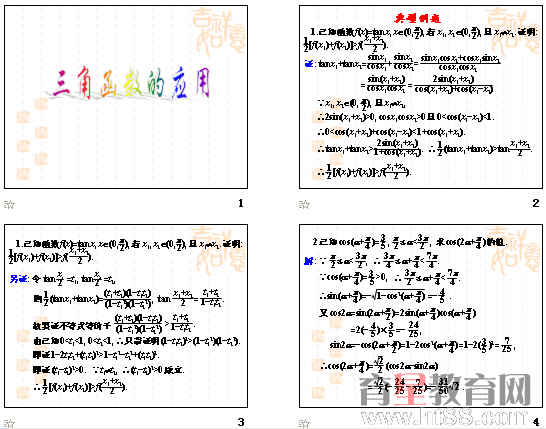 三角函数的应用
1
典型例题
1.已知函数f(x)=tanx, x∈(0, π/2), 若 x₁, x₂∈(0, π/2), 且 x₁≠x₂, 证明:
1/2[f(x₁)+f(x₂)]>f((x₁+x₂)/2).
证: tanx₁+tanx₂=sinx₁/cosx₁+sinx₂/cosx₂=(sinx₁cosx₂+cosx₁sinx₂)/(cosx₁cosx₂)
=sin(x₁+x₂)/(cosx₁cosx₂)=2sin(x₁+x₂)/(cos(x₁+x₂)+cos(x₁-x₂))
∵x₁, x₂∈(0, π/2), 且 x₁≠x₂,
∴2sin(x₁+x₂)>0, cosx₁cosx₂>0且0<cos(x₁-x₂)<1.
∴0<cos(x₁+x₂)+cos(x₁-x₂)<1+cos(x₁+x₂).
∴tanx₁+tanx₂>2sin(x₁+x₂)/(1+cos(x₁+x₂)). ∴1/2(tanx₁+tanx₂)>tan(x₁+x₂)/2.
∴1/2[f(x₁)+f(x₂)]>f((x₁+x₂)/2).
2
1.已知函数f(x)=tanx, x∈(0, π/2), 若 x₁, x₂∈(0, π/2), 且 x₁≠x₂, 证明:
1/2[f(x₁)+f(x₂)]>f((x₁+x₂)/2).
另证: 令 tan x₁/2=t₁, tan x₂/2=t₂,
则 1/2(tanx₁+tanx₂)=(t₁+t₂)(1-t₁t₂)/((1-t₁²)(1-t₂²)), tan(x₁+x₂)/2=(t₁+t₂)/(1-t₁t₂).
故要证不等式等价于 (t₁+t₂)(1-t₁t₂)/((1-t₁²)(1-t₂²))>(t₁+t₂)/(1-t₁t₂).
由已知 0<t₁<1, 0<t₂<1, ∴只需证明 (1-t₁t₂)²>(1-t₁²)(1-t₂²).
即证1-2t₁t₂+(t₁t₂)²>1-t₁²-t₂²+(t₁t₂)².
即证 (t₁-t₂)²>0. ∵t₁≠t₂, ∴(t₁-t₂)²>0 成立.
∴1/2[f(x₁)+f(x₂)]>f((x₁+x₂)/2).
3
2.已知 cos(α+π/4)=3/5, π/2≤α<3π/2, 求cos(2α+π/4)的值.
解: ∵π/2≤α<3π/2, ∴3π/4≤α+π/4<7π/4.
∵cos(α+π/4)=3/5>0, ∴3π/2<α+π/4<7π/4.
∴sin(α+π/4)=-√(1-cos²(α+π/4))=-4/5.
又 cos2α=sin(2α+π/2)=2sin(α+π/4)cos(α+π/4)
=2(-4/5)×3/5=-24/25,
sin2α=-cos(2α+π/2)=1-2cos²(α+π/4)=1-2(3/5)²=7/25,
∴cos(2α+π/4)=√2/2(cos2α-sin2α)
=√2/2(-24/25-7/25)=-31/50√2.
育星教育网
www.ht88.com
4